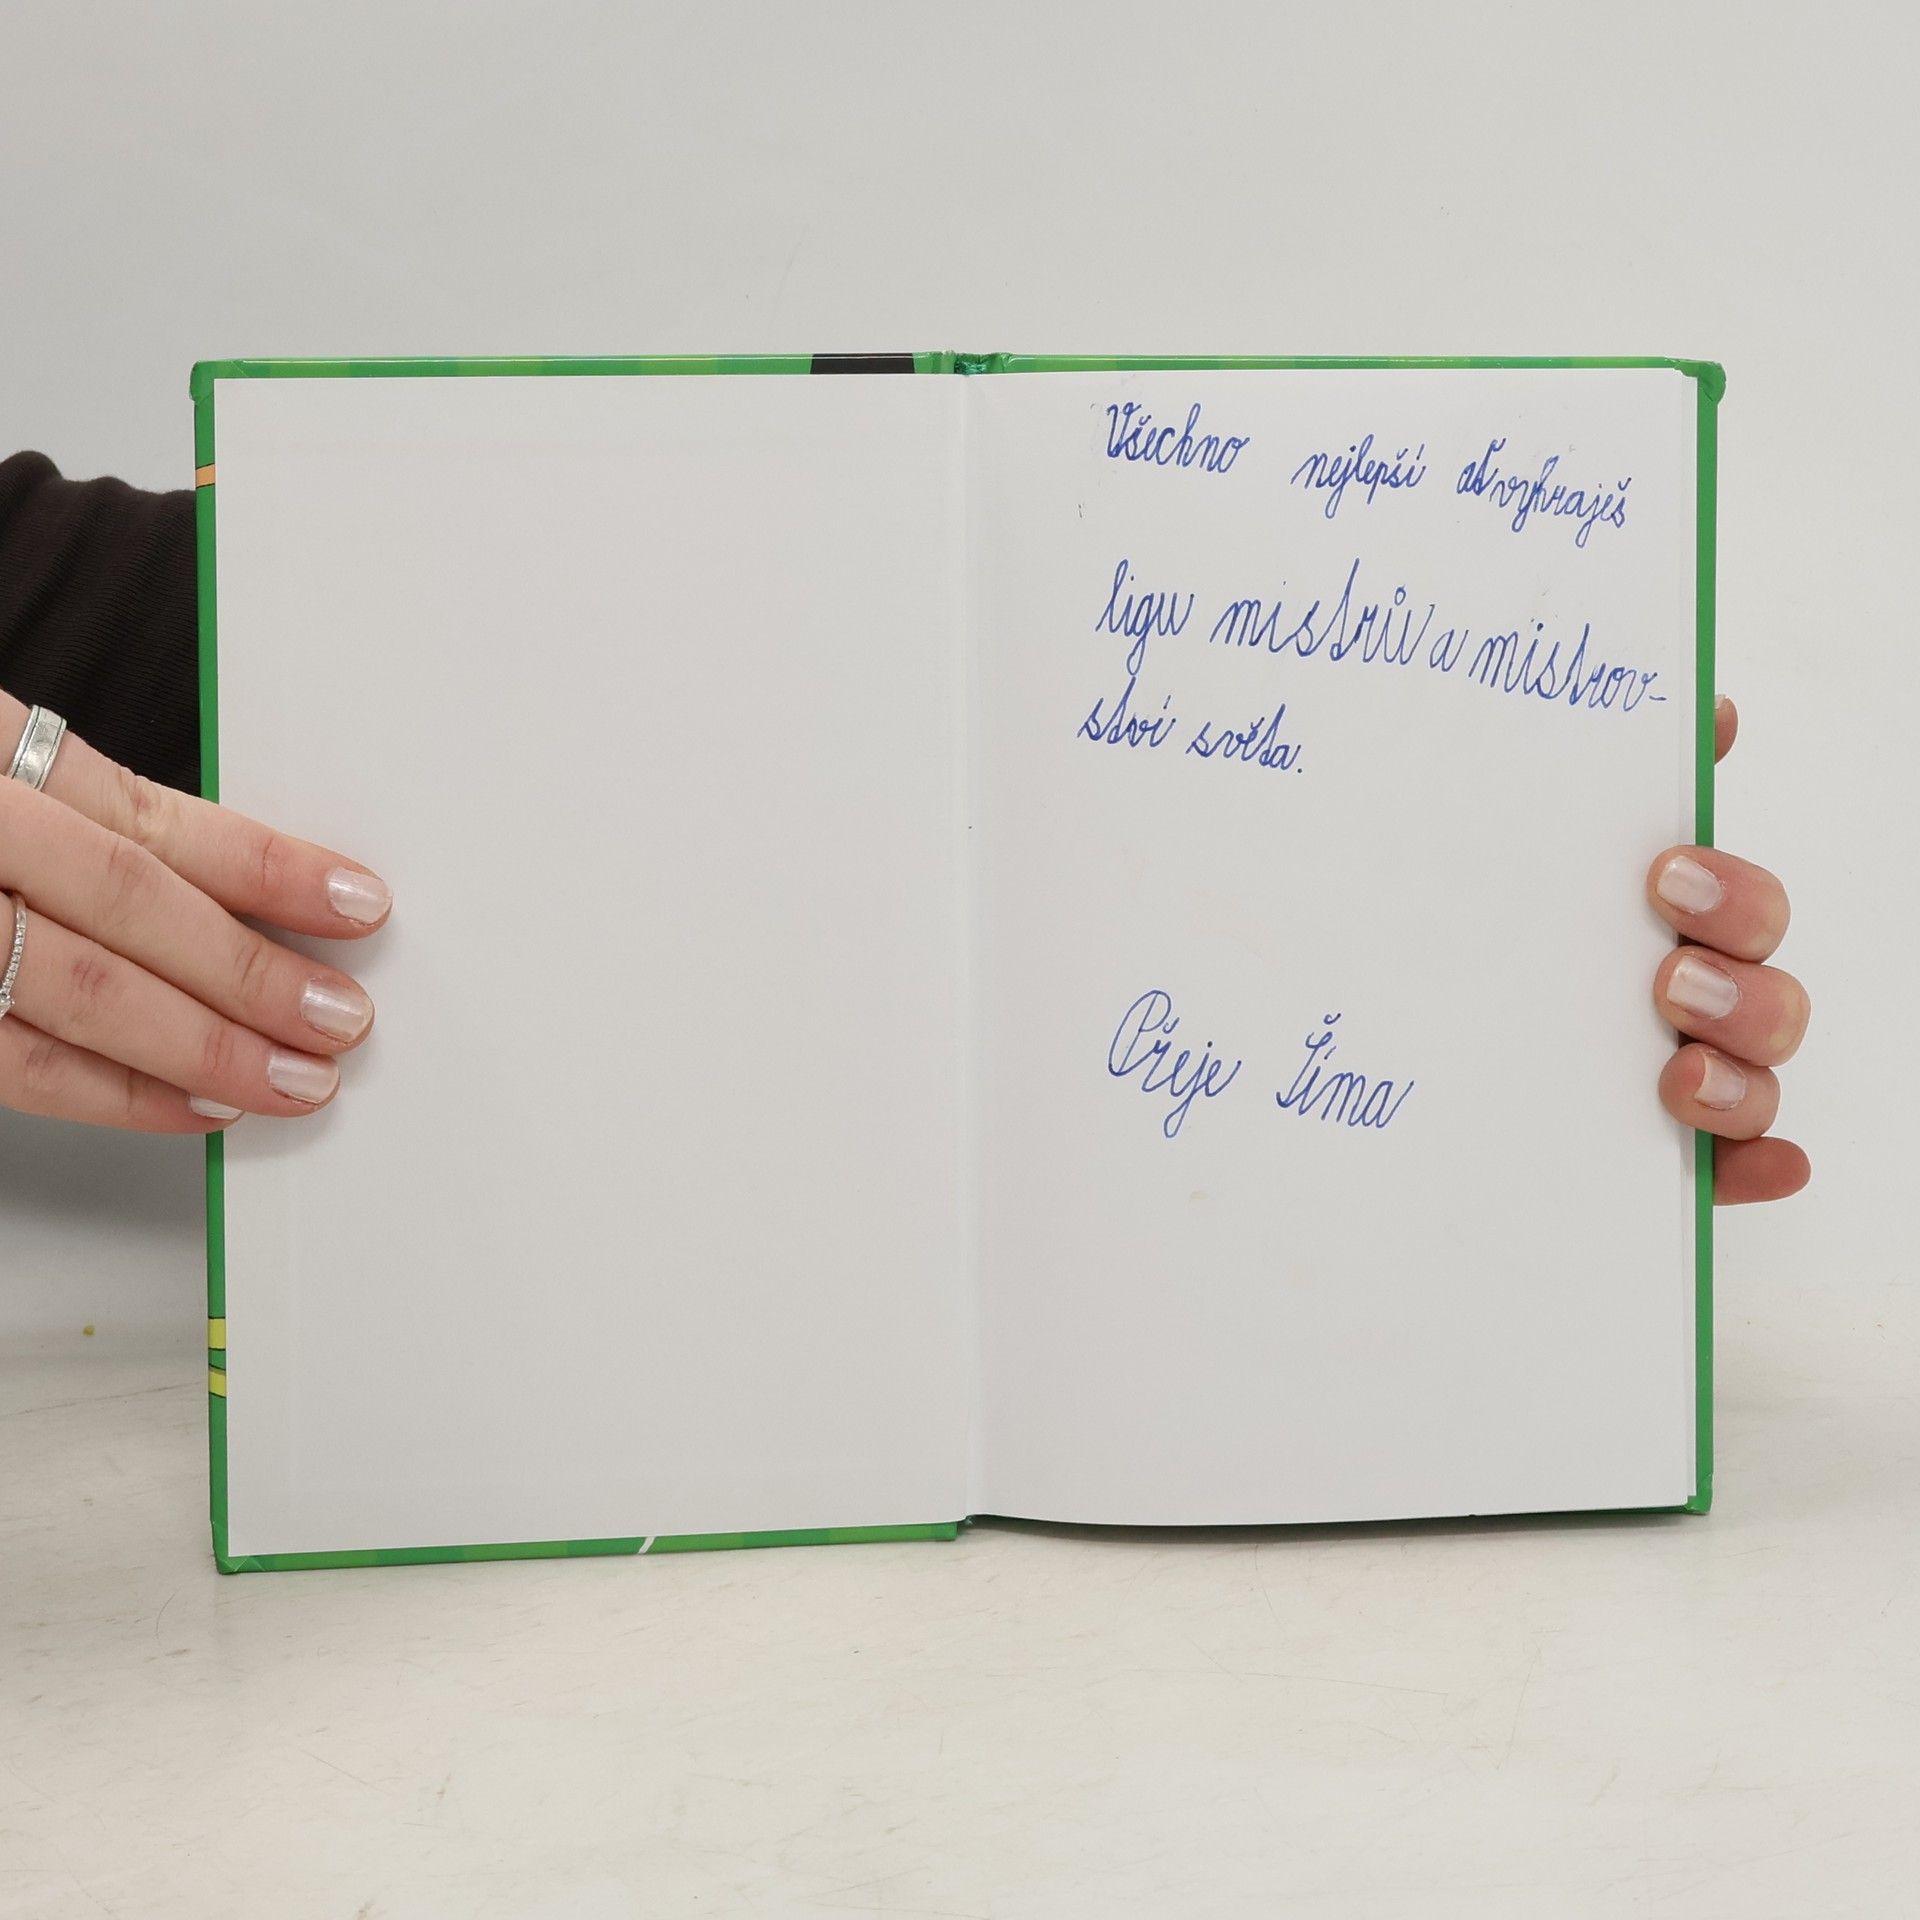 Všechno nejlepší ať vyhraješ
ligu mistrův a mistrov-
ství světa.
Přeje Šíma